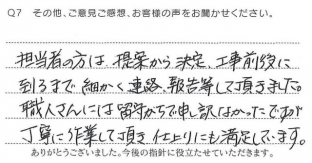 Q7 その他、ご意見ご感想、お客様の声をお聞かせください。
担当者の方は、提案から決定、工事前後に
到るまで細かく連絡、報告等して頂きました。
職人さんには留守がちで申し訳なかったですが
丁寧に作業して頂き仕上りにも満足しています。
ありがとうございました。今後の指針に役立たせていただきます。